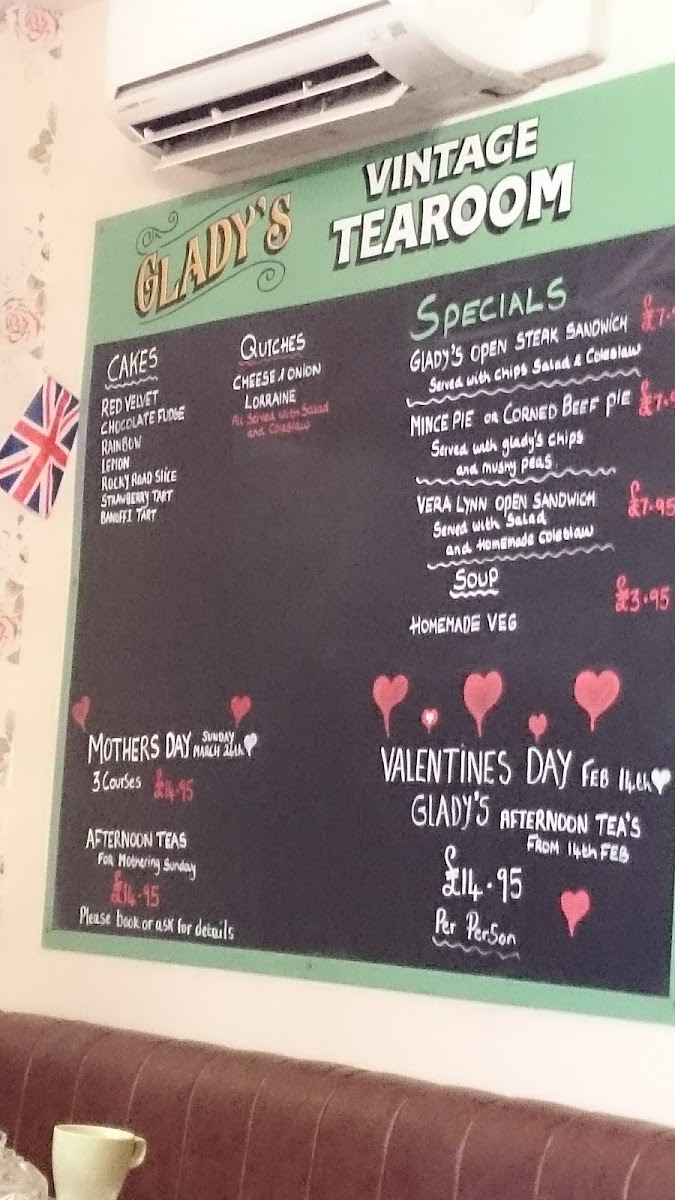 GLADY'S
VINTAGE
TEAROOM
CAKES
RED VELVET
CHOCOLATE FUDGE
RAINBOW
LEMON
ROCKY ROAD SLICE
STRAWBERRY TART
BANOFFI TART
QUICHES
CHEESE & ONION
LORRAINE
All Served with Salad
and Coleslaw
SPECIALS
GLADY'S OPEN STEAK SANDWICH £7.9
Served with Chips Salad & Coleslaw
MINCE PIE OR CORNED BEEF PIE £7.9
Served with glady's chips
and mushy peas
VERA LYNN OPEN SANDWICH £7.95
Served with Salad
and Homemade Coleslaw
SOUP £3.95
HOMEMADE VEG
MOTHERS DAY SUNDAY
MARCH 26th
3 Courses £14.95
AFTERNOON TEAS
FOR Mothering Sunday
£14.95
Please book or ask for details
VALENTINES DAY FEB 14th
GLADY'S AFTERNOON TEA'S
FROM 14th FEB
£14.95
Per Person